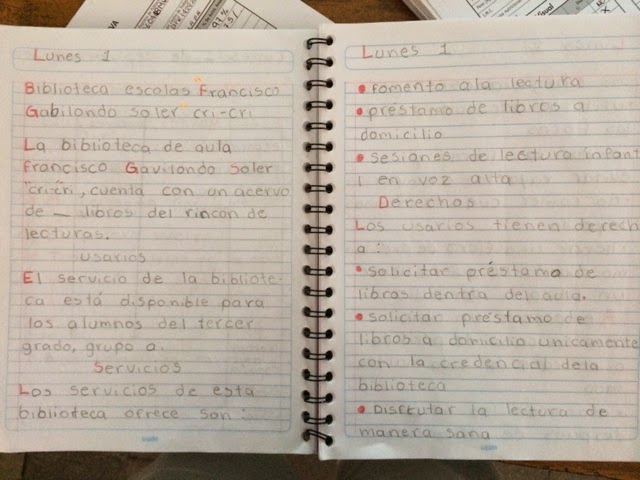 Lunes 1
Biblioteca escolas Francisco
Gabilondo soler cri-cri
La biblioteca de aula
Francisco Gavilondo Soler
"cri-cri, cuenta con un acervo
de _ libros del rincon de
lecturas.
usarios
El servicio de la bibliote-
ca está disponible para
los alumnos del tercer
grado, grupo a.
Servicios
Los servicios de esta
biblioteca ofrece son:
Lunes 1
• fomento ala lectura
• préstamo de libros a
domicilio
• sesiones de lectura infant
l en voz alta
Derechos
Los usarios tienen derech
a:
• solicitar préstamo de
libros dentra del aula.
• solicitar préstamo de
libros a domicilio unicamente
con la credencial dela
biblioteca
• Discrutar la lectura de
manera sana